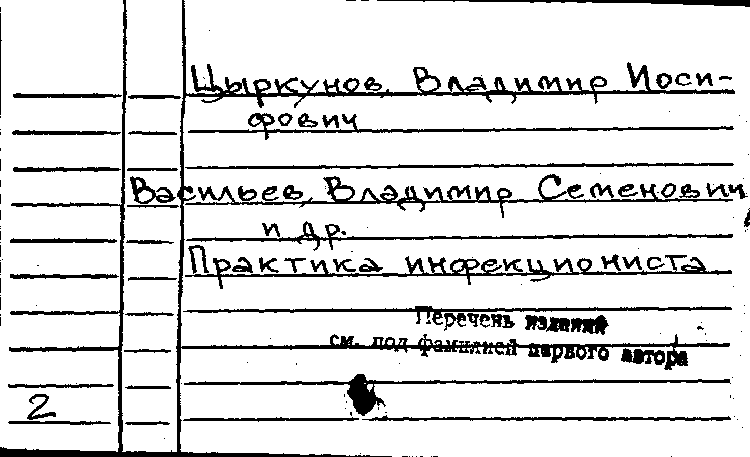 Цыркунов, Владимир Иоси-
фович
Васильев, Владимир Семенович
и др.
Практика инфекциониста
Перечень изданий
см. под фамилией первого автора
2